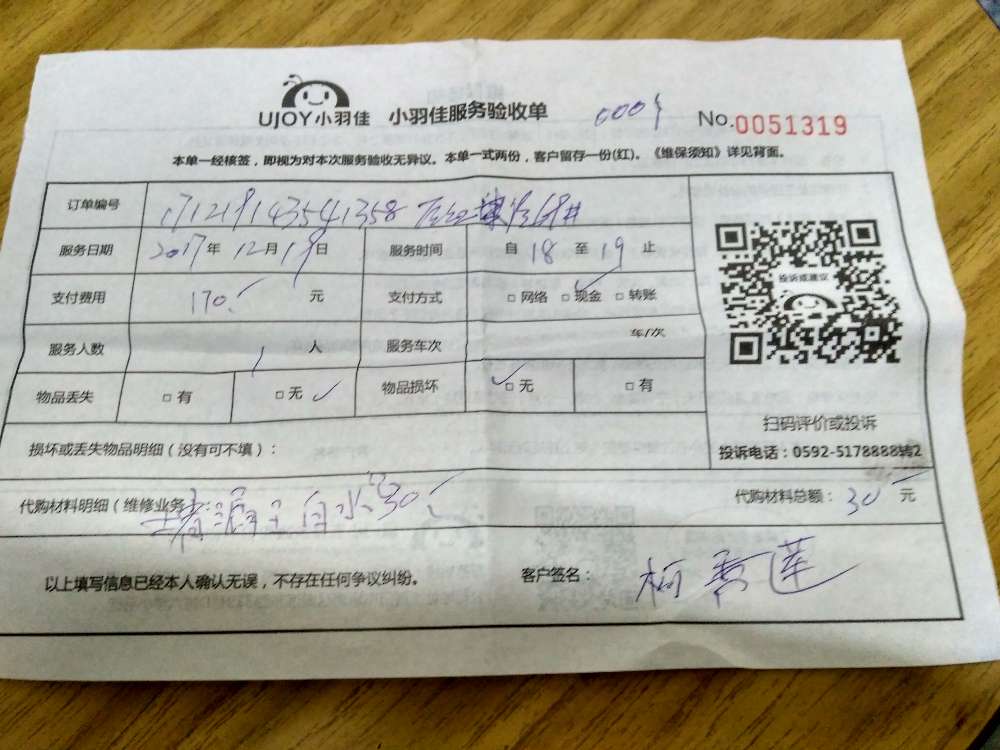 UJOY小羽佳 小羽佳服务验收单 No.0051319
本单一经核签，即视为对本次服务验收无异议。本单一式两份，客户留存一份(红)。《维保须知》详见背面。
订单编号
服务日期 2017年 12月 19日 服务时间 自 18 至 19 止
支付费用 170. 元 支付方式 □ 网络 □ 现金 □ 转账
服务人数 1 人 服务车次 车/次
物品丢失 □ 有 □ 无 ✓ 物品损坏 ✓ □ 无 □ 有
投诉或建议
扫码评价或投诉
投诉电话：0592-5178888转2
损坏或丢失物品明细（没有可不填）：
代购材料明细（维修业务 白水泥30 代购材料总额：30 元
以上填写信息已经本人确认无误，不存在任何争议纠纷。 客户签名：柯 莲